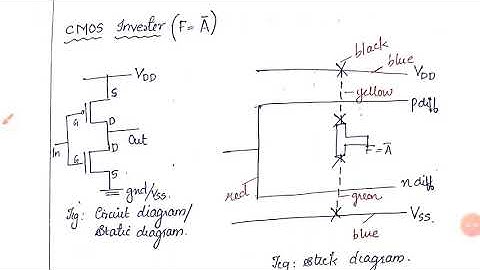 CMOS Inverter (F = A̅)
VDD
S
G
D
Out
In
D
G
S
gnd/Vss.
Fig: Circuit diagram/
Static diagram.
black
blue
VDD
yellow
pdiff
F = A̅
red
ndiff
green
Vss.
blue
Fig: Stick diagram.